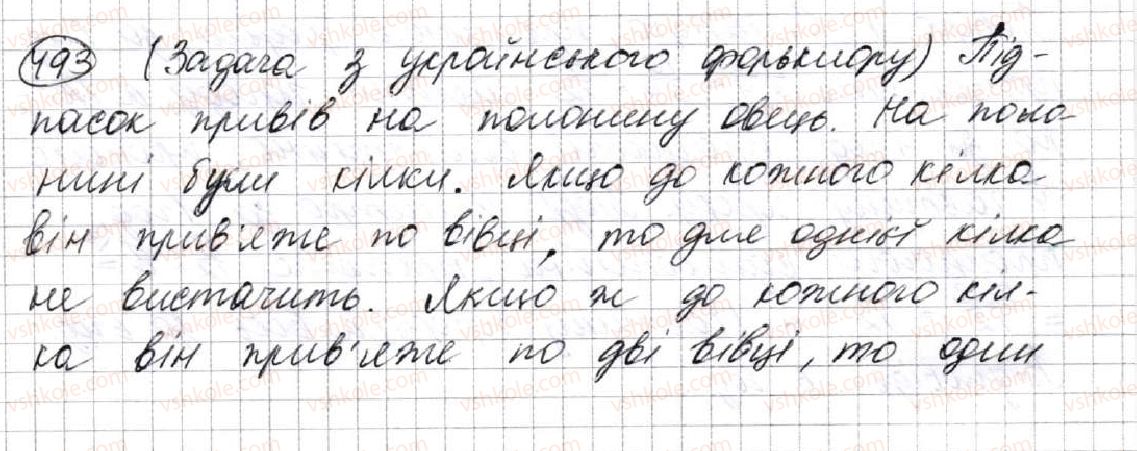 493 (Задача з українського фольклору) Під-
пасок привів на полонину овець. На поло
нині були кілки. Якщо до кожного кілка
він прив'яже по вівці, то для однієї кілка
не вистачить. Якщо ж до кожного кіл-
ка він прив'яже по дві вівці, то один